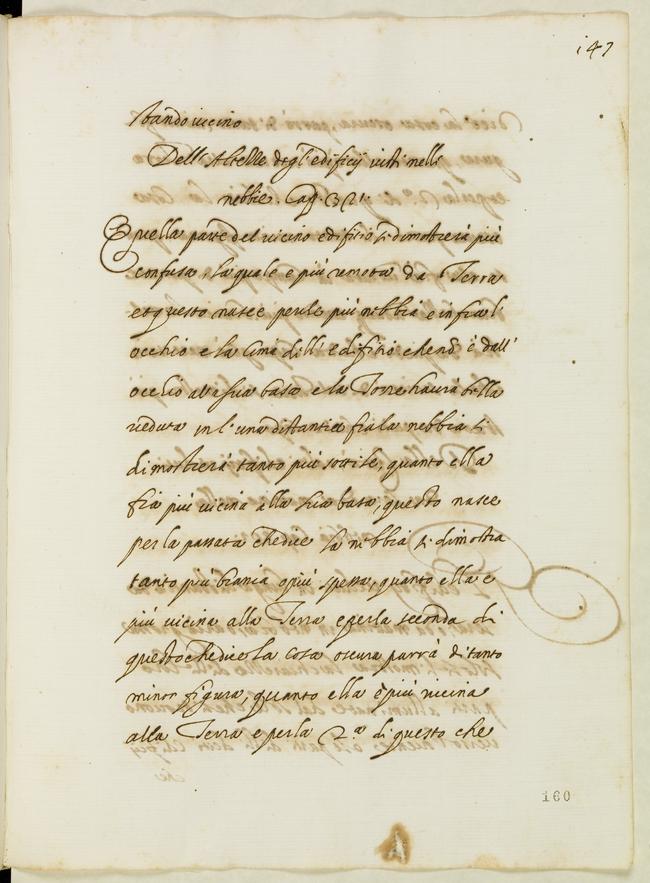 147
stando vicino
Dell'Altezze degl'edificij visti nelle
nebbie. Cap. 321.
Quella parte del vicino edifitio si dimostrerà più
confusa, la quale è più remota da Terra
et questo nasce perche più nebbia è infra l
occhio e la Cima dell'edifitio che nõ è dall'
occhio alla sua basa e la Torre
veduta in l'una distantia fra la nebbia si
dimostrerà tanto più sottile, quanto ella
fia più vicina alla sua basa, questo nasce
per la passata che dice la nebbia si dimostra
tanto più biancha o più spessa, quanto ella e
più vicina alla Terra e per la seconda di
questo che dice La Cosa oscura parrà di tanto
minor figura, quanto ella è più vicina
alla Terra e per la 2.ª di questo che
che
160